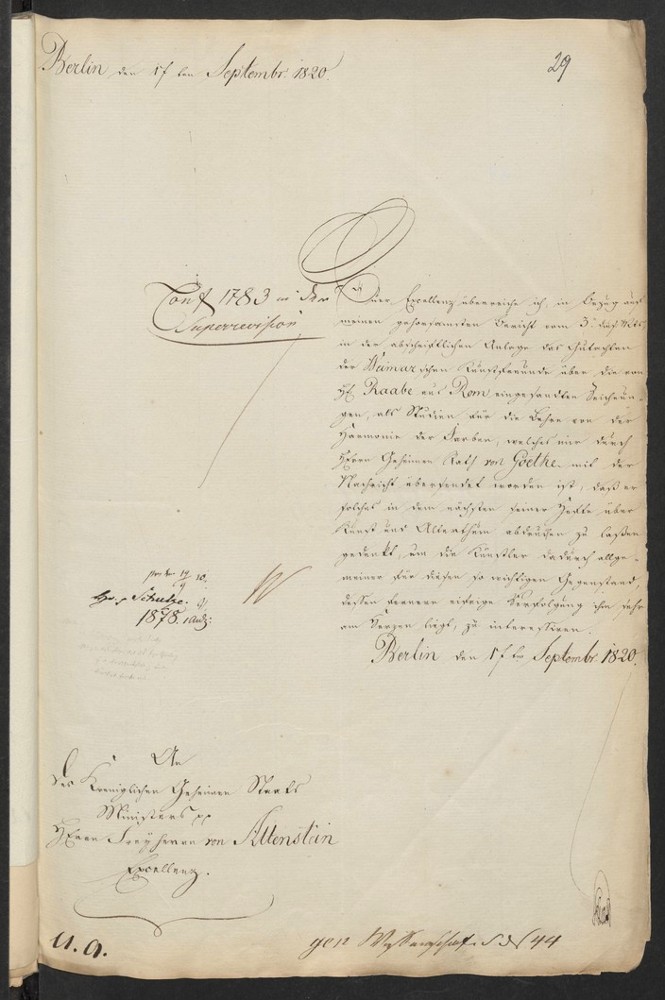 Berlin den 17ten Septembr 1820.
29
Conf 1783 in der
Superrevision
Euer Excellenz überreiche ich, in Bezug auf
meinen gehorsamsten Bericht vom 3t
in der abschriftlichen Anlage das Gutachten
der Weimarschen Kunstfreunde über die von
H. Raabe aus Rom eingesandten Zeichnun
gen, als Studien für die Lehre von der
Harmonie der Farben, welches mir durch
Herrn Geheimen Rath von Goethe mit der
Nachricht übersendet worden ist, daß er
solches in dem nächsten seiner Hefte über
Kunst und Alterthum abdrucken zu laßen
gedenkt, um die Künstler dadurch allge-
meiner für diesen so wichtigen Gegenstand,
dessen fernere eifrige Verfolgung ihm sehr
am Herzen liegt, zu interessiren.
Berlin den 17ten Septembr 1820.
19/9 20.
H. Schulze
1878.
An
des Koeniglichen Geheimen Staats
Ministers pp
Herrn Freyherrn von Altenstein
Excellenz.
U. a.
44